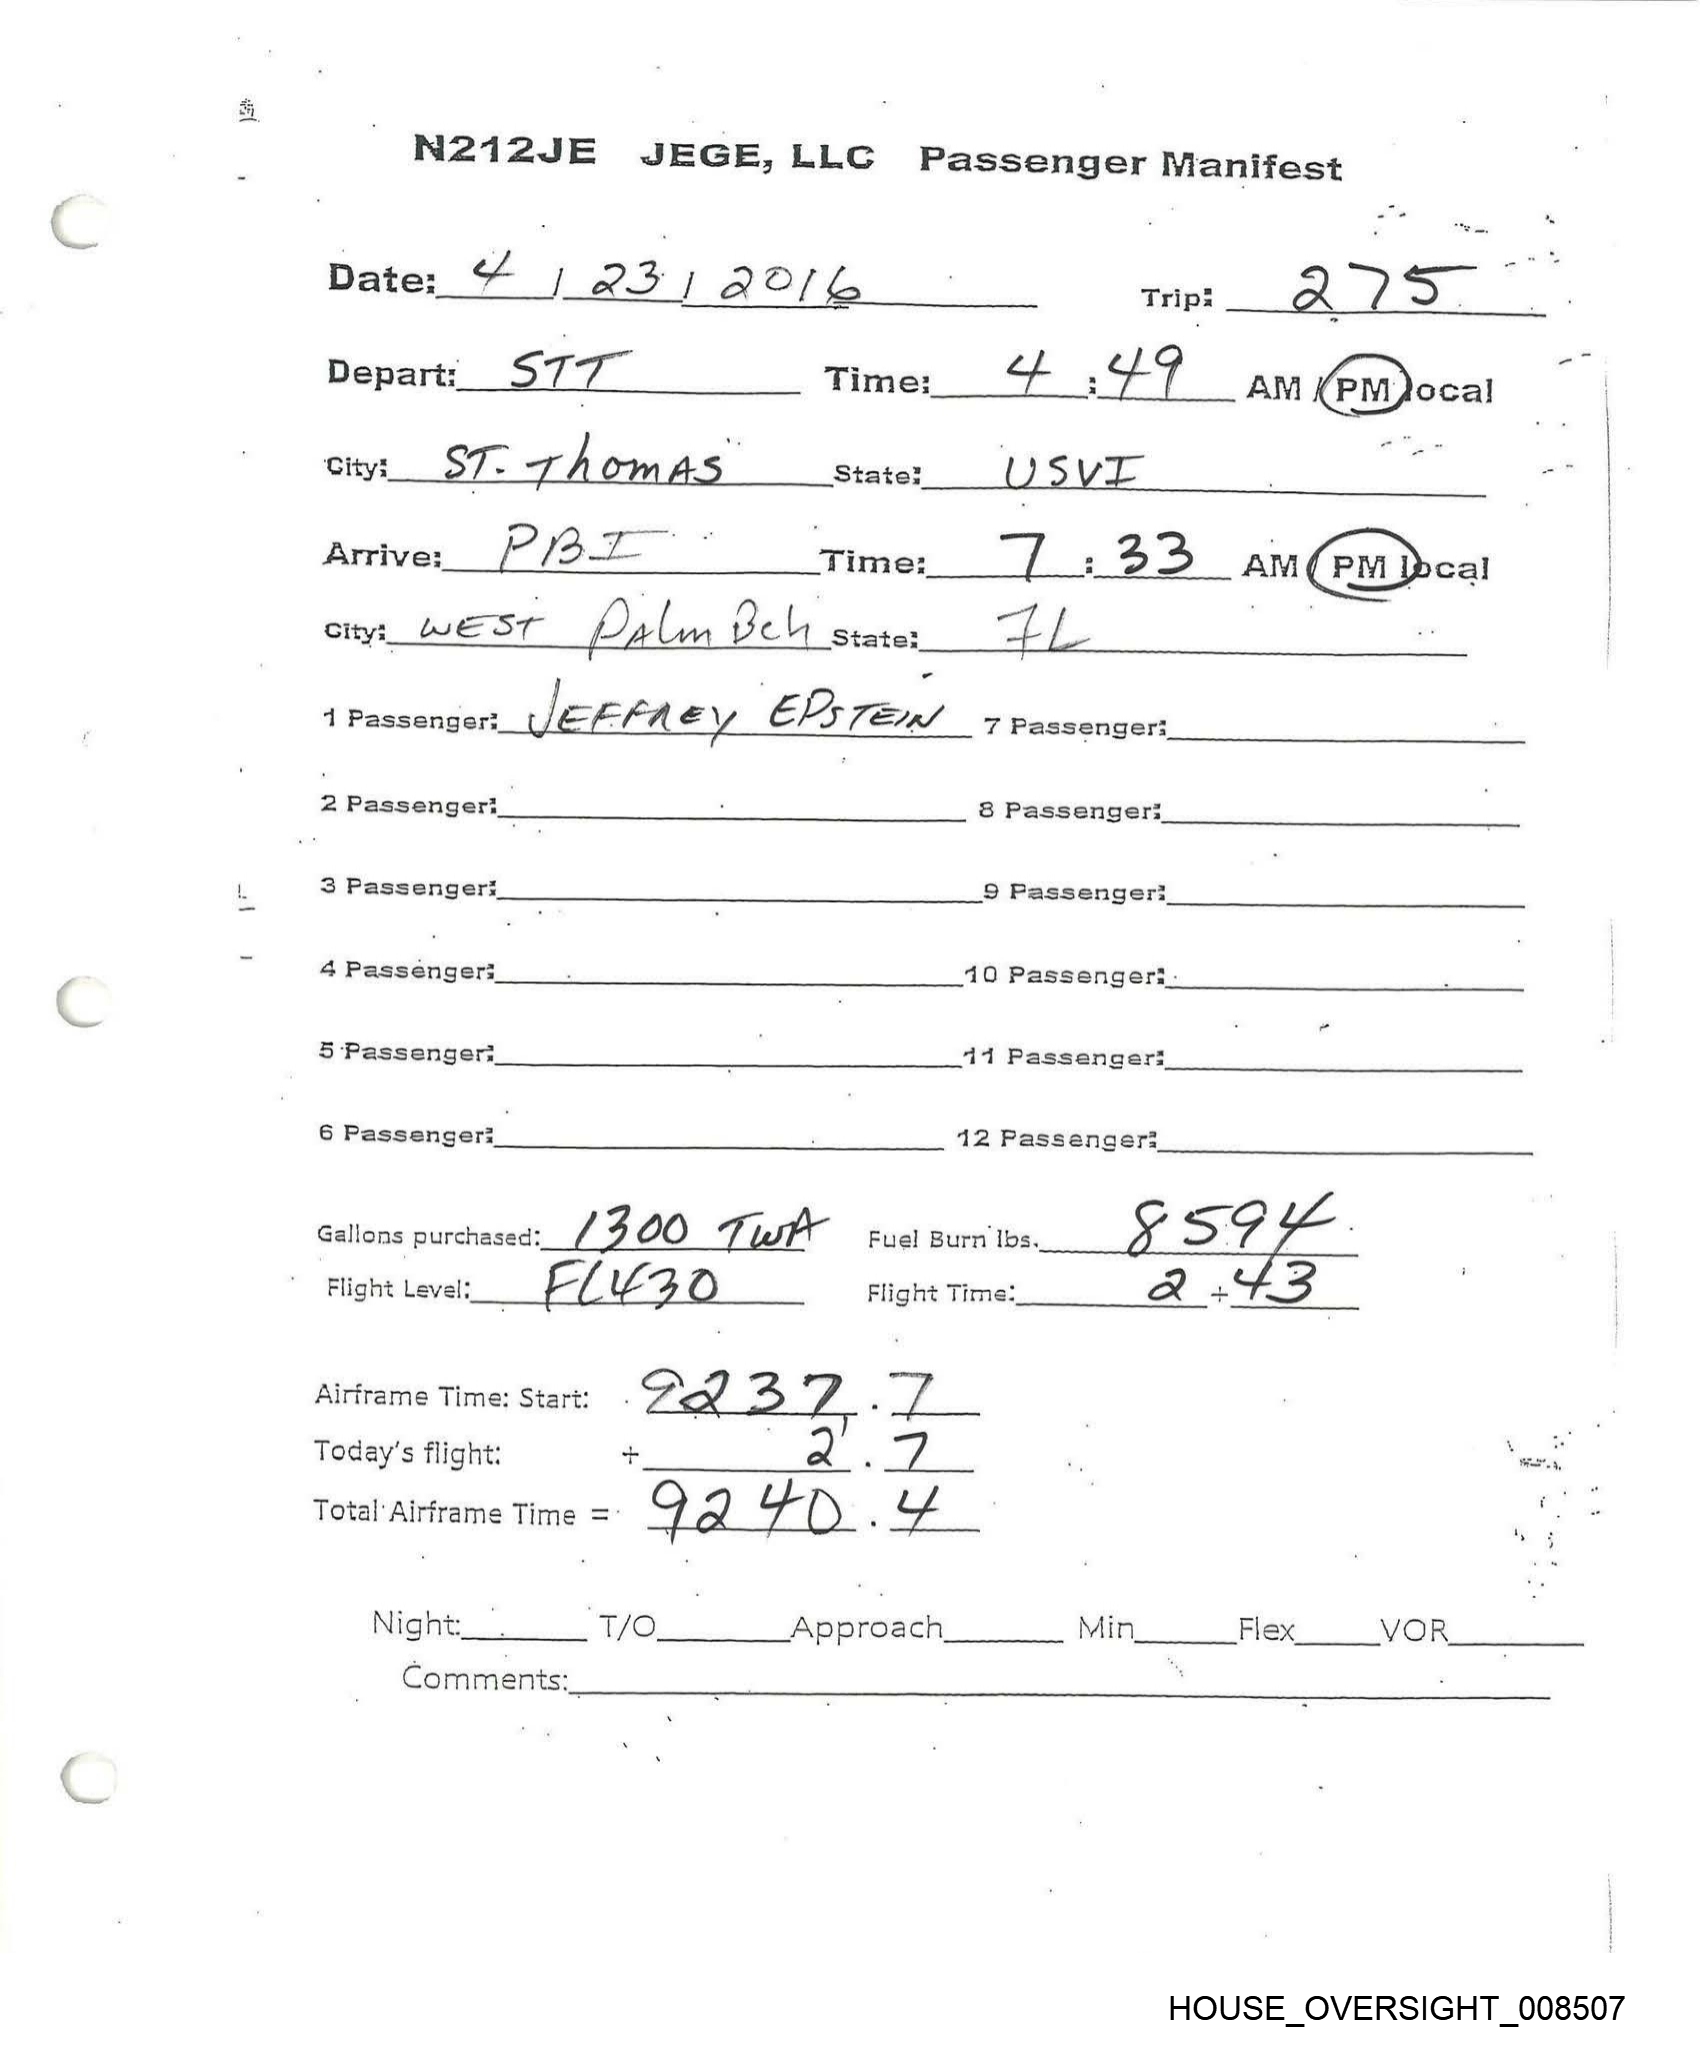 N212JE JEGE, LLC Passenger Manifest
Date: 4 / 23 / 2016 Trip: 275
Depart: STT Time: 4 : 49 AM / PM local
City: ST. Thomas State: USVI
Arrive: PBI Time: 7 : 33 AM / PM local
City: WEST PAlm Bch State: FL
1 Passenger: JEFFREY EPSTEIN 7 Passenger:
2 Passenger: 8 Passenger:
3 Passenger: 9 Passenger:
4 Passenger: 10 Passenger:
5 Passenger: 11 Passenger:
6 Passenger: 12 Passenger:
Gallons purchased: 1300 TWA Fuel Burn lbs. 8594
Flight Level: FL430 Flight Time: 2 + 43
Airframe Time: Start: 9237.7
Today's flight: + 2.7
Total Airframe Time = 9240.4
Night: T/O Approach Min Flex VOR
Comments:
HOUSE_OVERSIGHT_008507